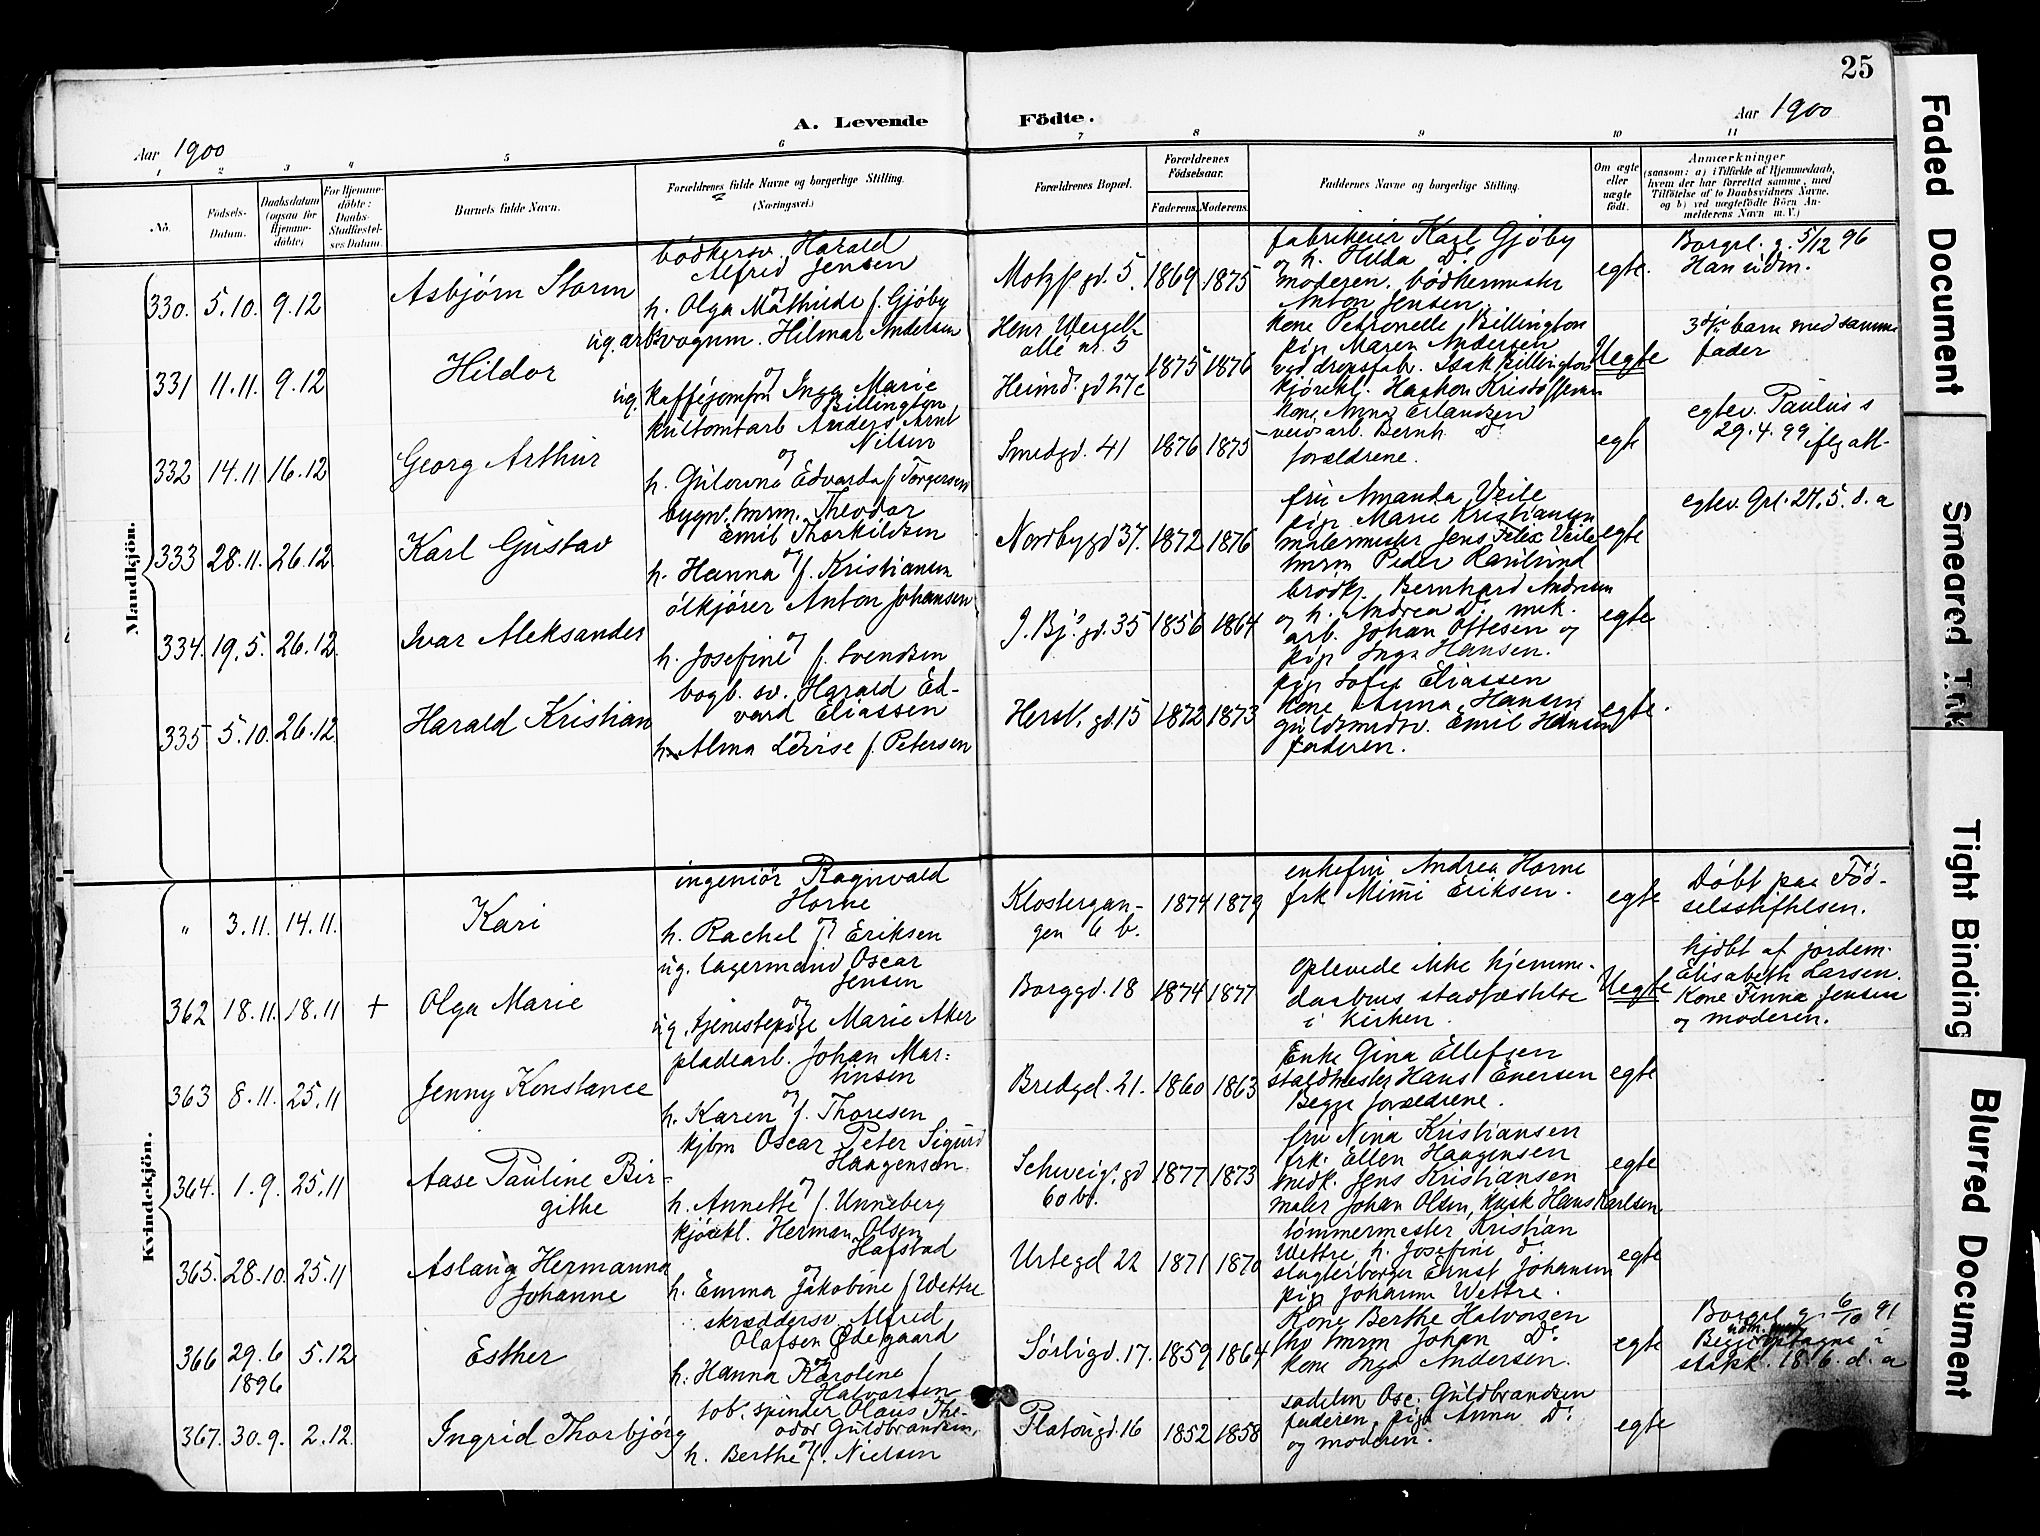 25
A. Levende Födte.
Aar 1900
Aar 1900
1 2 3 4 5 6 7 8 9 10 11
No.
Födsels-Datum.
Daabsdatum (ogsaa for Hjemme-döbte)
For Hjemme-döbte: Daabs-Stadfæstel-ses Datum.
Barnets fulde Navn.
Forældrenes fulde Navne og borgerlige Stilling.
(Næringsvei.)
Forældrenes Bopæl.
Forældrenes Födselsaar.
Faderens. Moderens.
Faddernes Navne og borgerlige Stilling.
Om ægte eller uægte födt.
Anmærkninger
(saasom: a) i Tilfælde af Hjemmedaab,
hvem der har forrettet samme, med
Tilföielse af to Daabsvidners Navne,
og b) ved uægtefödte Börn An-
melderens Navn m. V.)
Mandkjön.
330. 5.10. 9.12 Asbjørn Storm
bødkersv. Harald
Alfred Jensen
og
h. Olga Mathilde f. Gjøby
Motzf. gd. 5. 1869 1875
fabrikeier Karl Gjøby
og h. Hilda Do
moderen. bødkermester
Anton Jensen.
egte.
Borgrl. g. 5/12 96
Han udm.
331 11.11. 9.12 Hildor
ug. arb. vognm. Hilmar Andersen
og
ug. kafféjomfru Inga Marie
Billington
Henr Wergel.
allé nr. 5
Heimd. gd 27c
1875 1876
kone Petronelle Billington
pige Maren Andersen
Isak Billington
kjørekl. Haakon Kristoffersen
Uegte
3die barn med samme
fader
332 14.11 16.12 Georg Arthur
Anders Arnt
Nilsen
og
h. Gulovine Edvarda f. Torgersen
Smedgd. 41 1876 1875
kone Anna Erlandsen
arb. Bernh. Do
forældrene.
egte
egtev. Paulus s
29.4.99 iflg att-
333 28.11. 26.12 Karl Gustav
bygn. tmrm. Theodor
Emil Thorkildsen
og
h. Hanna f. Kristiansen
Nordbygd 37. 1872 1876
fru Amanda Veile
pige Marie Kristiansen
malermester Jens Felix Veile
tmrm Peder Raulund
egte
egtev. Grl. 27.5. d. a
334. 19.5. 26.12. Ivar Aleksander
ølkjører Anton Johansen
og
h. Josefine f. Svendsen
J. Bj. gd. 35 1856 1864
brødh. Bernhard Andresen
og h. Andrea Do. mek.
arb. Johan Ottesen og
pige Inga Hansen.
egte
335 5.10. 26.12. Harald Kristian
bogb. sv. Harald Ed-
vard Eliassen
og
h. Alma Lovise f. Petersen
Hersl. gd. 15 1872 1873
pige Sofie Eliassen
kone Anna Hansen
guldsmedsv. Emil Hansen
faderen.
egte.
Kvindekjön.
" 3.11. 14.11. Kari
ingeniør Ragnvald
Horne
og
h. Rachel f. Eriksen
Klostergan-
gen 6 b.
1874 1879
enkefru Andrea Horne
frk Mimi Eriksen.
egte
Døbt paa Fød-
selsstiftelsen.
362 18.11. 18.11 + Olga Marie
ug. lagermand Oscar
Jensen
og
ug. tjenestepige Marie Aker
Borggd. 18 1874 1877
Oplevede ikke hjemme-
daabens stadfæstelse
i kirken.
Uegte
hjdbt af jordem.
Elisabeth Larsen.
Kone Finna Jensen
og moderen.
363 8.11. 25.11 Jenny Konstance
pladearb. Johan Mar-
tinsen
og
h. Karen f. Thoresen
Bredgd. 21. 1860 1863
Enke Gina Ellefsen
staldmester Hans Enersen
Begge forældrene.
egte
364. 1.9. 25.11 Aase Pauline Bir-
githe
kjbm Oscar Peter Sigurd
Haagensen.
og
h. Annette f. Unneberg
Schweig. gd
60 bf.
1877 1873
fru Nina Kristiansen
frk. Ellen Haagensen
medh. Jens Kristiansen
maler Johan Olsen, kusk Hans Karlsen
egte
365. 28.10. 25.11 Aslaug Hermanna
Johanne
kjørekl. Herman Olsen
Hafstad
og
h. Emma Jakobine f Wettre
Urtegd 22 1871 1870
tømmermester Kristian
Wettre h. Josefine d.
slagterborger Ernst Johansen
pige Johanne Wettre.
egte
366 29.6 1896 5.12 Esther
skræddersv Alfred
Olafsen Ødegaard
og
h. Hanna Karoline f
Halvorsen
Sørligd. 17. 1859 1864
Kone Berthe Halvorsen
tmrm Johan Do.
kone Inga Andersen.
egte
Borgrl g. 6/10 91
Begge optagne i
statsk. 18.6. d. a
367. 30.9. 2.12. Ingrid Thorbjørg
tob. spinder Olaus The-
odor Guldbrandsen,
og
h. Berthe f. Nielsen
Platougd. 16 1852 1858
sadelm Osc. Guldbrandsen
faderen, pige Anna Do.
og moderen.
egte
Faded Document
Smeared Ink
Tight Binding
Blurred Document